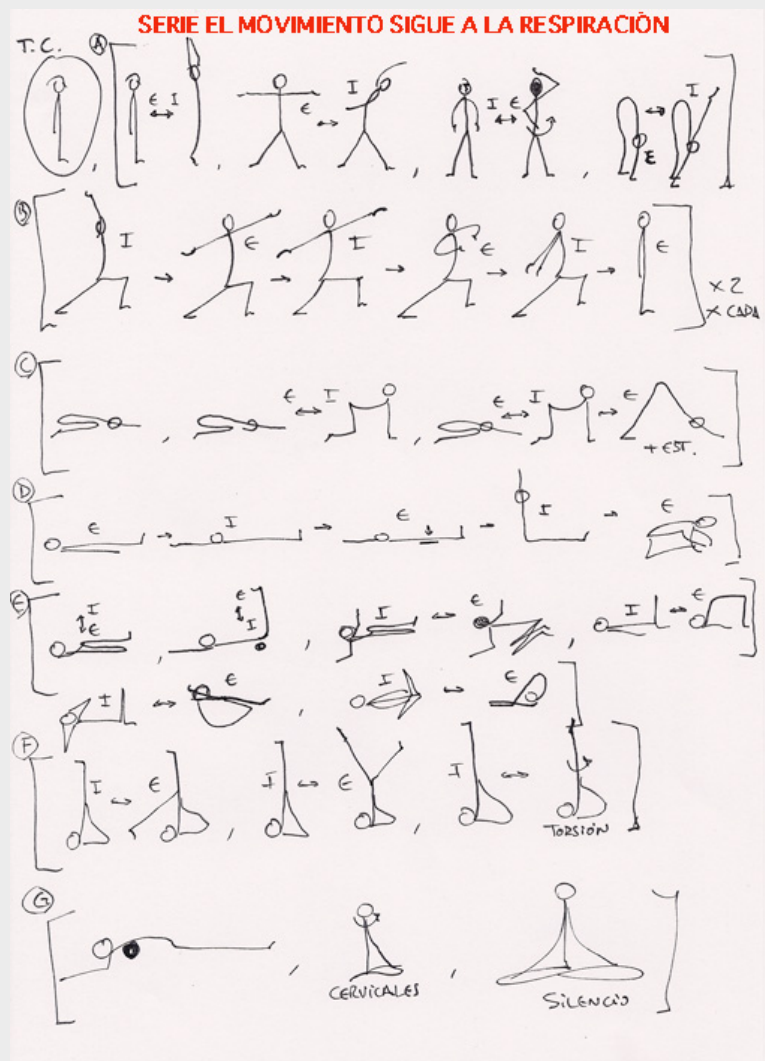 SERIE EL MOVIMIENTO SIGUE A LA RESPIRACIÓN
T.C. A
E I E I I E I E
B
I E I E I E
x 2
x CADA
C
E I E I E
+ EST.
D
E I E I E
E
I E E I I E I E
I E I E
F
I E I E I
TORSIÓN
G
CERVICALES
SILENCIO